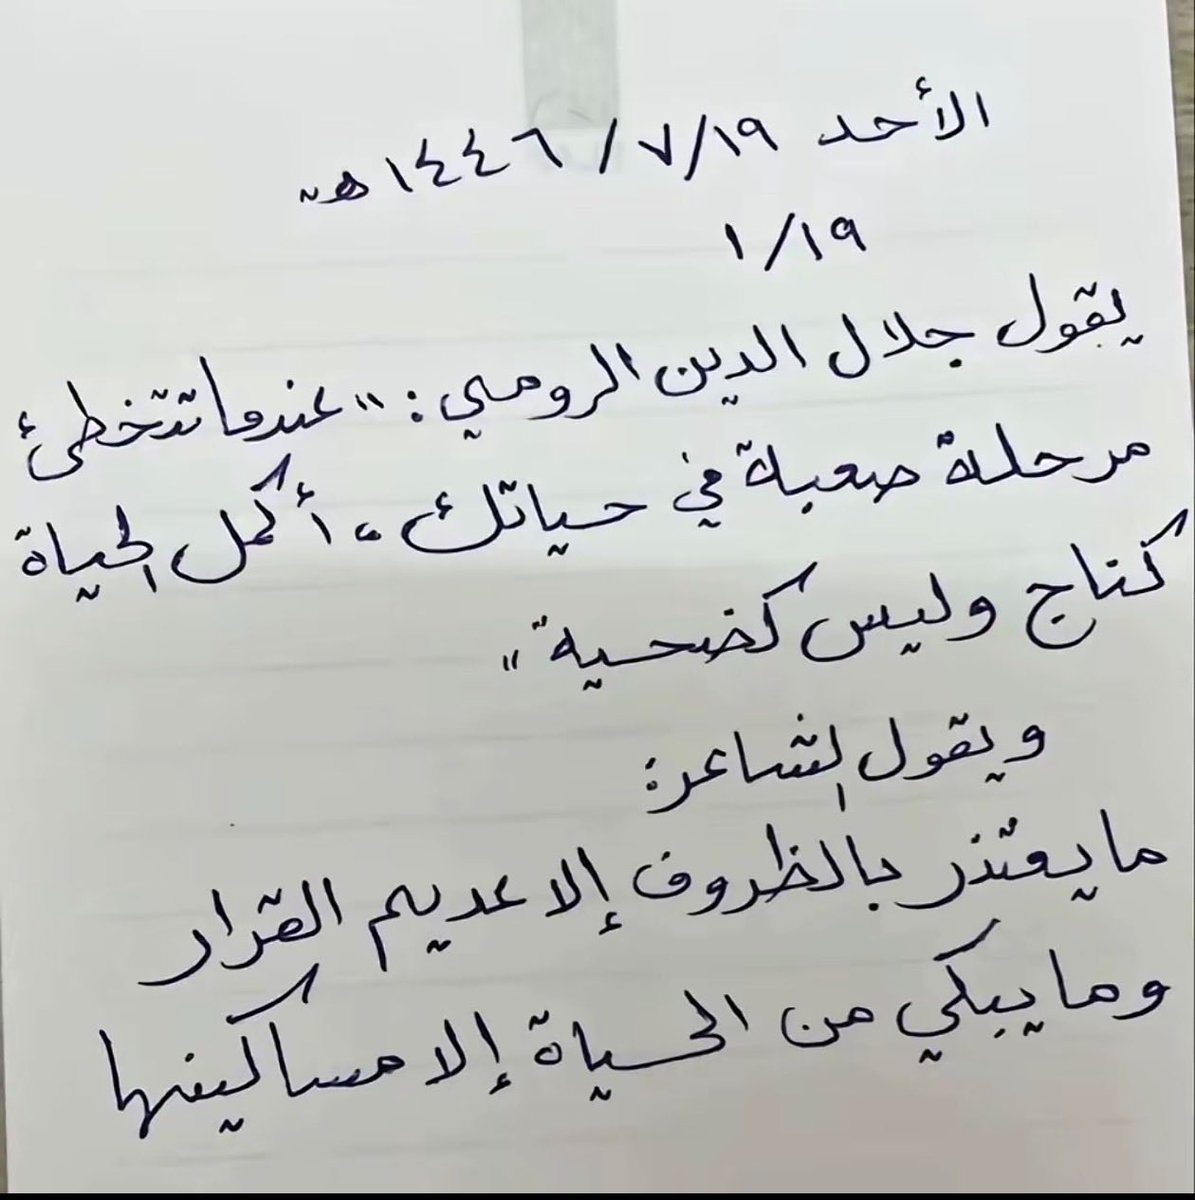 الأحد ١٩/٧/١٤٤٦هـ
١/١٩
يقول جلال الدين الرومي: "عندما تتخطئ
مرحلة صعبة في حياتك، أكمل الحياة
كناج وليس كضحية"
ويقول الشاعر:
ما يعتذر بالظروف إلا عديم القرار
وما يبكي من الحياة إلا مساكينها